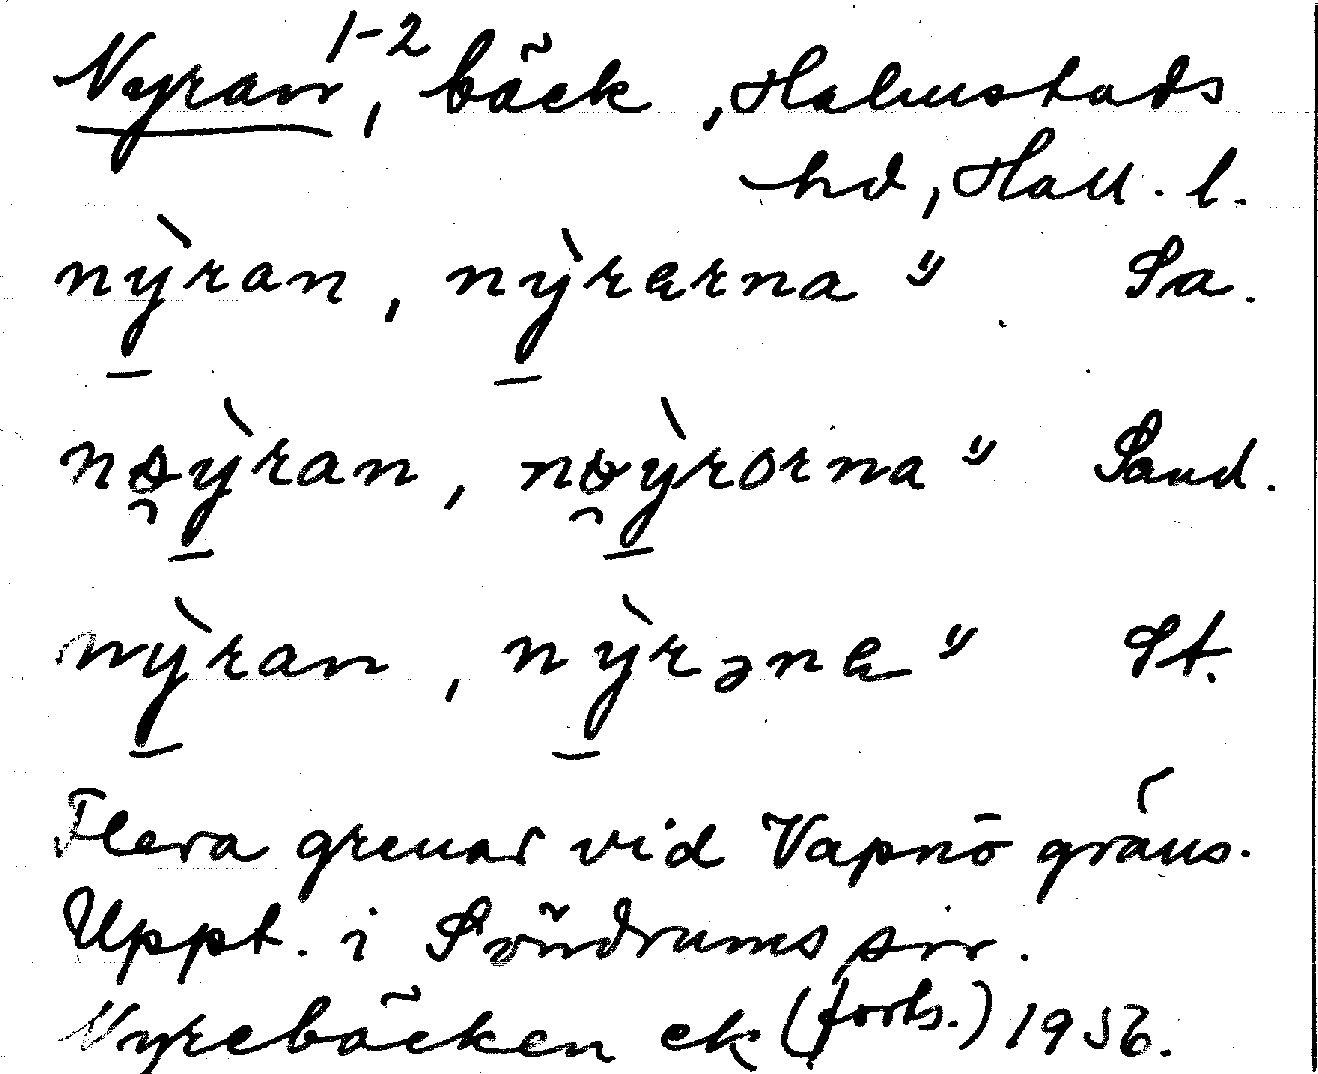 Nyran 1-2, bäck, Halmstads
hd, Hall. l.
nỳran, nỳrarna " Sa.
nøỳran, nøỳrorna " Sand.
nỳran, nỳrəna " St.
Flera grenar vid Vapnö gräns.
Uppt. i Söndrums snr.
Nyrebäcken ek (forts.) 1956.